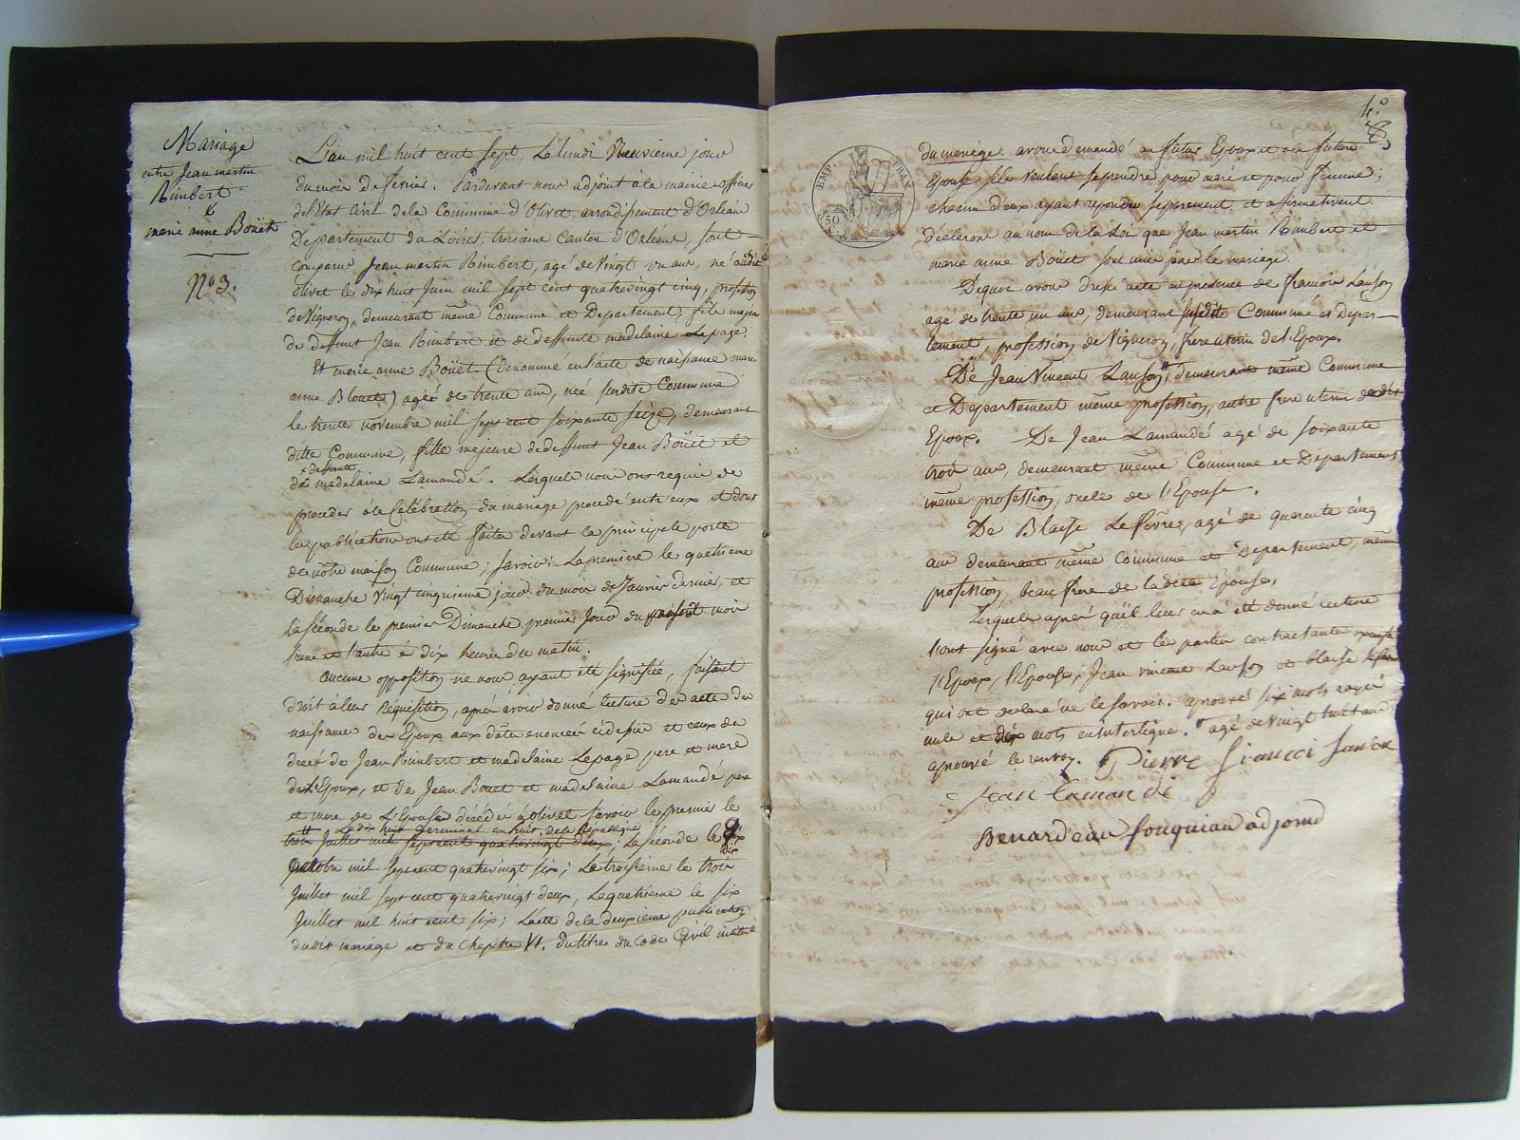 Mariage
entre Jean martin
Rimbert
&
marie anne Boüet
No 3.
L'an mil huit cent sept, Le lundi Neuvieme jour
du mois de fevrier. Pardevant nous adjoint à la mairie officier
de l'Etat Civil de la Commune d'Olivet arrondissement d'Orleans
Departement du Loiret, troisieme Canton d'Orleans, sont
comparus Jean martin Rimbert, agé de Vingt un ans, né audit
olivet le dix huit Juin mil sept cent quatrevingt cinq, profession
de Vigneron, demeurant même Commune et Departement, fils majeur
de deffunt Jean Rimbert et de deffunte madelaine Lepage.
Et marie anne Boüet (denommé en l'acte de naissance marie
anne Blouet) agée de trente ans, née susdite Commune
le trente novembre mil sept cent soixante seize, demeurant
ditte Commune, fille majeure de deffunt Jean Boüet et
deffunte
de madelaine Lamandé. Lesquels nous ont requis de
proceder à la Celebration du mariage projetté entr'eux et dont
les publications ont été faites devant la principale porte
de notre maison Commune; savoir: La premiere le quatrieme
Dimanche Vingt cinquieme jour du mois de Janvier dernier, et
la seconde le premier Dimanche premier Jour du present mois
l'une et l'autre à dix heures du matin.
Aucune opposition ne nous ayant été signifiée, faisant
droit à leur Requisition, après avoir donné lecture des actes de
naissance des Epoux aux dates enoncées cidessus et ceux de
decès de Jean Rimbert et madelaine Lepage pere et mere
de l'Epoux, et de Jean Bouet et madelaine Lamandé pere
et mere de L'Epouse décédés à olivet savoir le premier le
Le dix huit germinal an huit de la Republique
trois Juillet mil sept cent quatrevingt deux; la seconde le dix
octobre mil sept cent quatrevingt six; Le troisieme le trois
Juillet mil sept cent quatrevingt deux, Le quatrieme le six
Juillet mil huit cent six; L'acte de la deuxieme publication
dudit mariage et du Chapitre VI. du titre du Code Civil intitulé
4.e
8
EMP. FRAN.
50
du mariage avons demandé au futur Epoux et à la future
Epouse s'ils veulent se prendre pour mari et pour femme;
chacun d'eux ayant repondu separement et affirmativement
déclarons au nom de la Loi que Jean martin Rimbert et
marie anne Boüet sont unis par le mariage.
De quoi avons dressé acte en presence de francois Lanson
agé de trente un ans, demeurant susdite Commune et Depar-
tement, profession de Vigneron, frere uterin de l'Epoux.
De Jean Vincent Lanson, demeurant même Commune
et Departement même profession, autre frere uterin dudit
Epoux. De Jean Lamandé agé de soixante
trois ans, demeurant même Commune et Departement
même profession, oncle de l'Epouse.
De Blaise Lefevre, agé de quarante cinq
ans demeurant même Commune et Departement, même
profession, beau frere de la dite Epouse.
Lesquels après qu'il leur en a été donné lecture
l'ont signé avec nous et les parties contractantes excepté
l'Epoux, l'Epouse, Jean vincent Lanson et blaise lefevre
qui ont declaré ne le savoir. aprouvé six mots rayés
nuls et dix mots en interligne. agé de vingt huit ans
aprouvé le renvoy. Pierre francoi Lanson
Jean Lamandé
Benardeau fouquiau adjoint